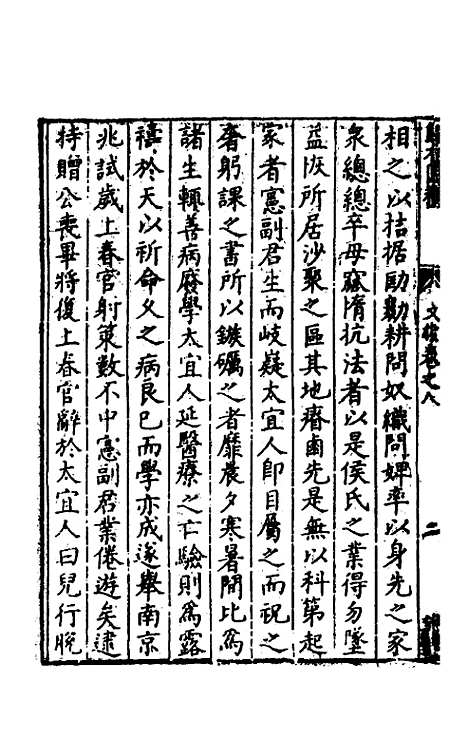 相之以拮据劻勷耕問奴織問婢率以身先之家
衆總總卒毋窳惰抗法者以是侯氏之業得勿墜
益恢所居沙聚之區其地瘠鹵先是無以科第起
家者憲副君生而岐嶷太宜人即目屬之而祝之
奢躬課之書所以鏃礪之者靡晨夕寒暑間比爲
諸生輒善病廢學太宜人延醫療之亡驗則爲露
禱於天以祈命久之病良已而學亦成遂舉南京
兆試歲上春官射策數不中憲副君業倦遊矣逮
持贈公喪畢將復上春官辭於太宜人曰兒行脫
文 卷之八
二